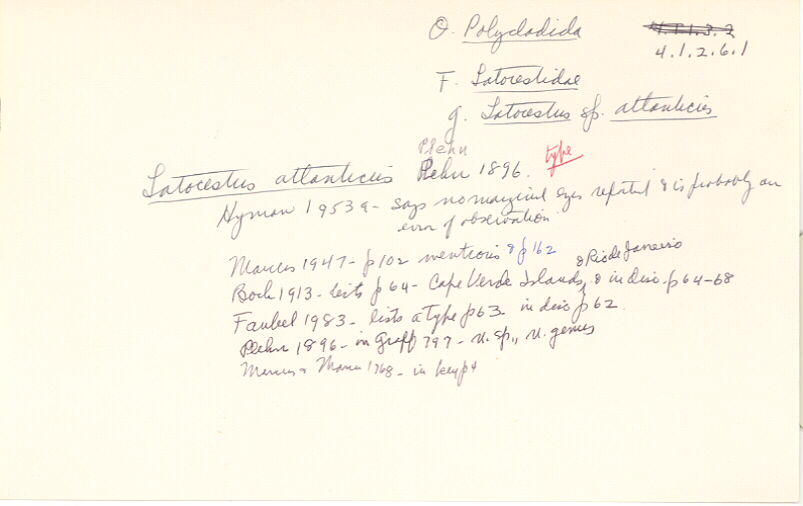 O. Polycladida
4.T.1.3.2
4.1.2.6.1
F. Latocestidae
g. Latocestus sp. atlanticus
Plehn
Latocestus atlanticus Plehn 1896. type
Hyman 1953a - says no marginal eyes reported & is probably an
error of observation
Marcus 1947 - p102 mentions & p162
& Rio de Janeiro
Bock 1913 - lists p64 - Cape Verde Islands, & in disc. p64-68
Faubel 1983 - lists a type p63 in disc p62.
Plehn 1896 - in Graff 797 - n. sp., n. genus
Marcus & Marcus 1968 - in key p4